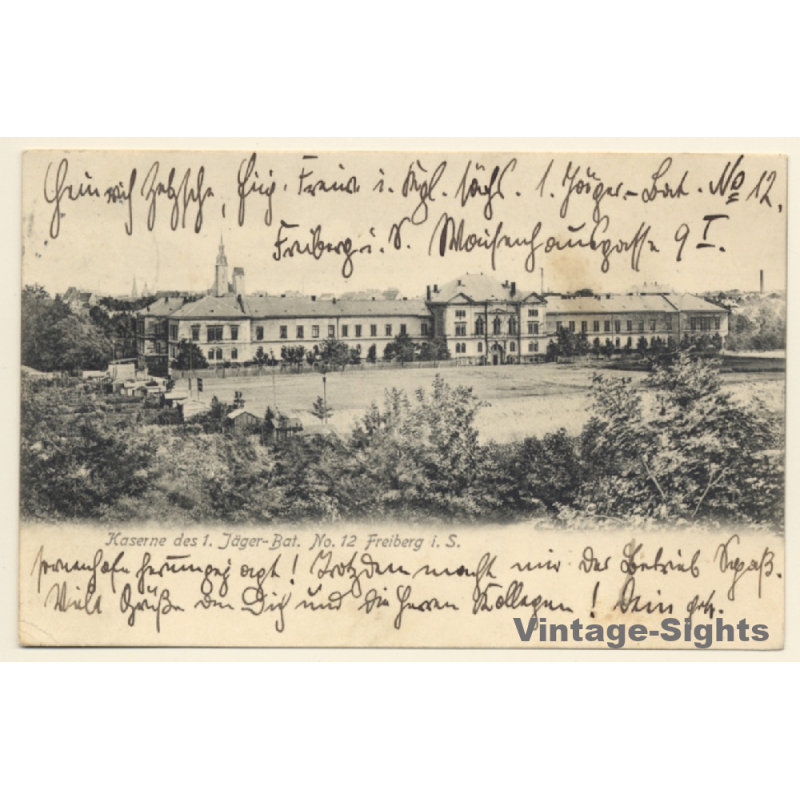 Heinrich Zetzsche, Einj. Freiw. i. Kgl. sächs. 1. Jäger-Bat. No 12,
Freiberg i. S. Waisenhausgasse 9 I.
Kaserne des 1. Jäger-Bat. No. 12 Freiberg i. S.
herumgejagt! Trotzdem macht mir der Betrieb Spaß.
Viele Grüße an Dich und die Herren Kollegen! Dein
Vintage-Sights